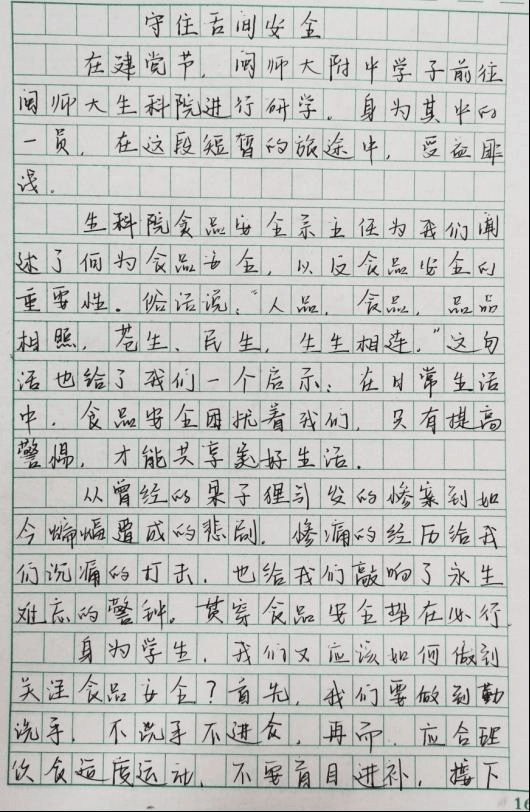 守住舌间安全
在建党节，闽师大附中学子前往
闽师大生科院进行研学。身为其中的
一员，在这段短暂的旅途中，受益匪
浅。
生科院食品安全系主任为我们阐
述了何为食品安全，以及食品安全的
重要性。俗话说：“人品，食品，品品
相照，苍生、民生，生生相连。”这句
话也给了我们一个启示：在日常生活
中，食品安全困扰着我们，只有提高
警惕，才能共享美好生活。
从曾经的果子狸引发的惨案到如
今蝙蝠酿成的悲剧，惨痛的经历给我
们沉痛的打击，也给我们敲响了永生
难忘的警钟。贯穿食品安全势在必行
身为学生，我们又应该如何做到
关注食品安全？首先，我们要做到勤
洗手，不洗手不进食，再而，应合理
饮食适度运动，不要盲目进补，接下